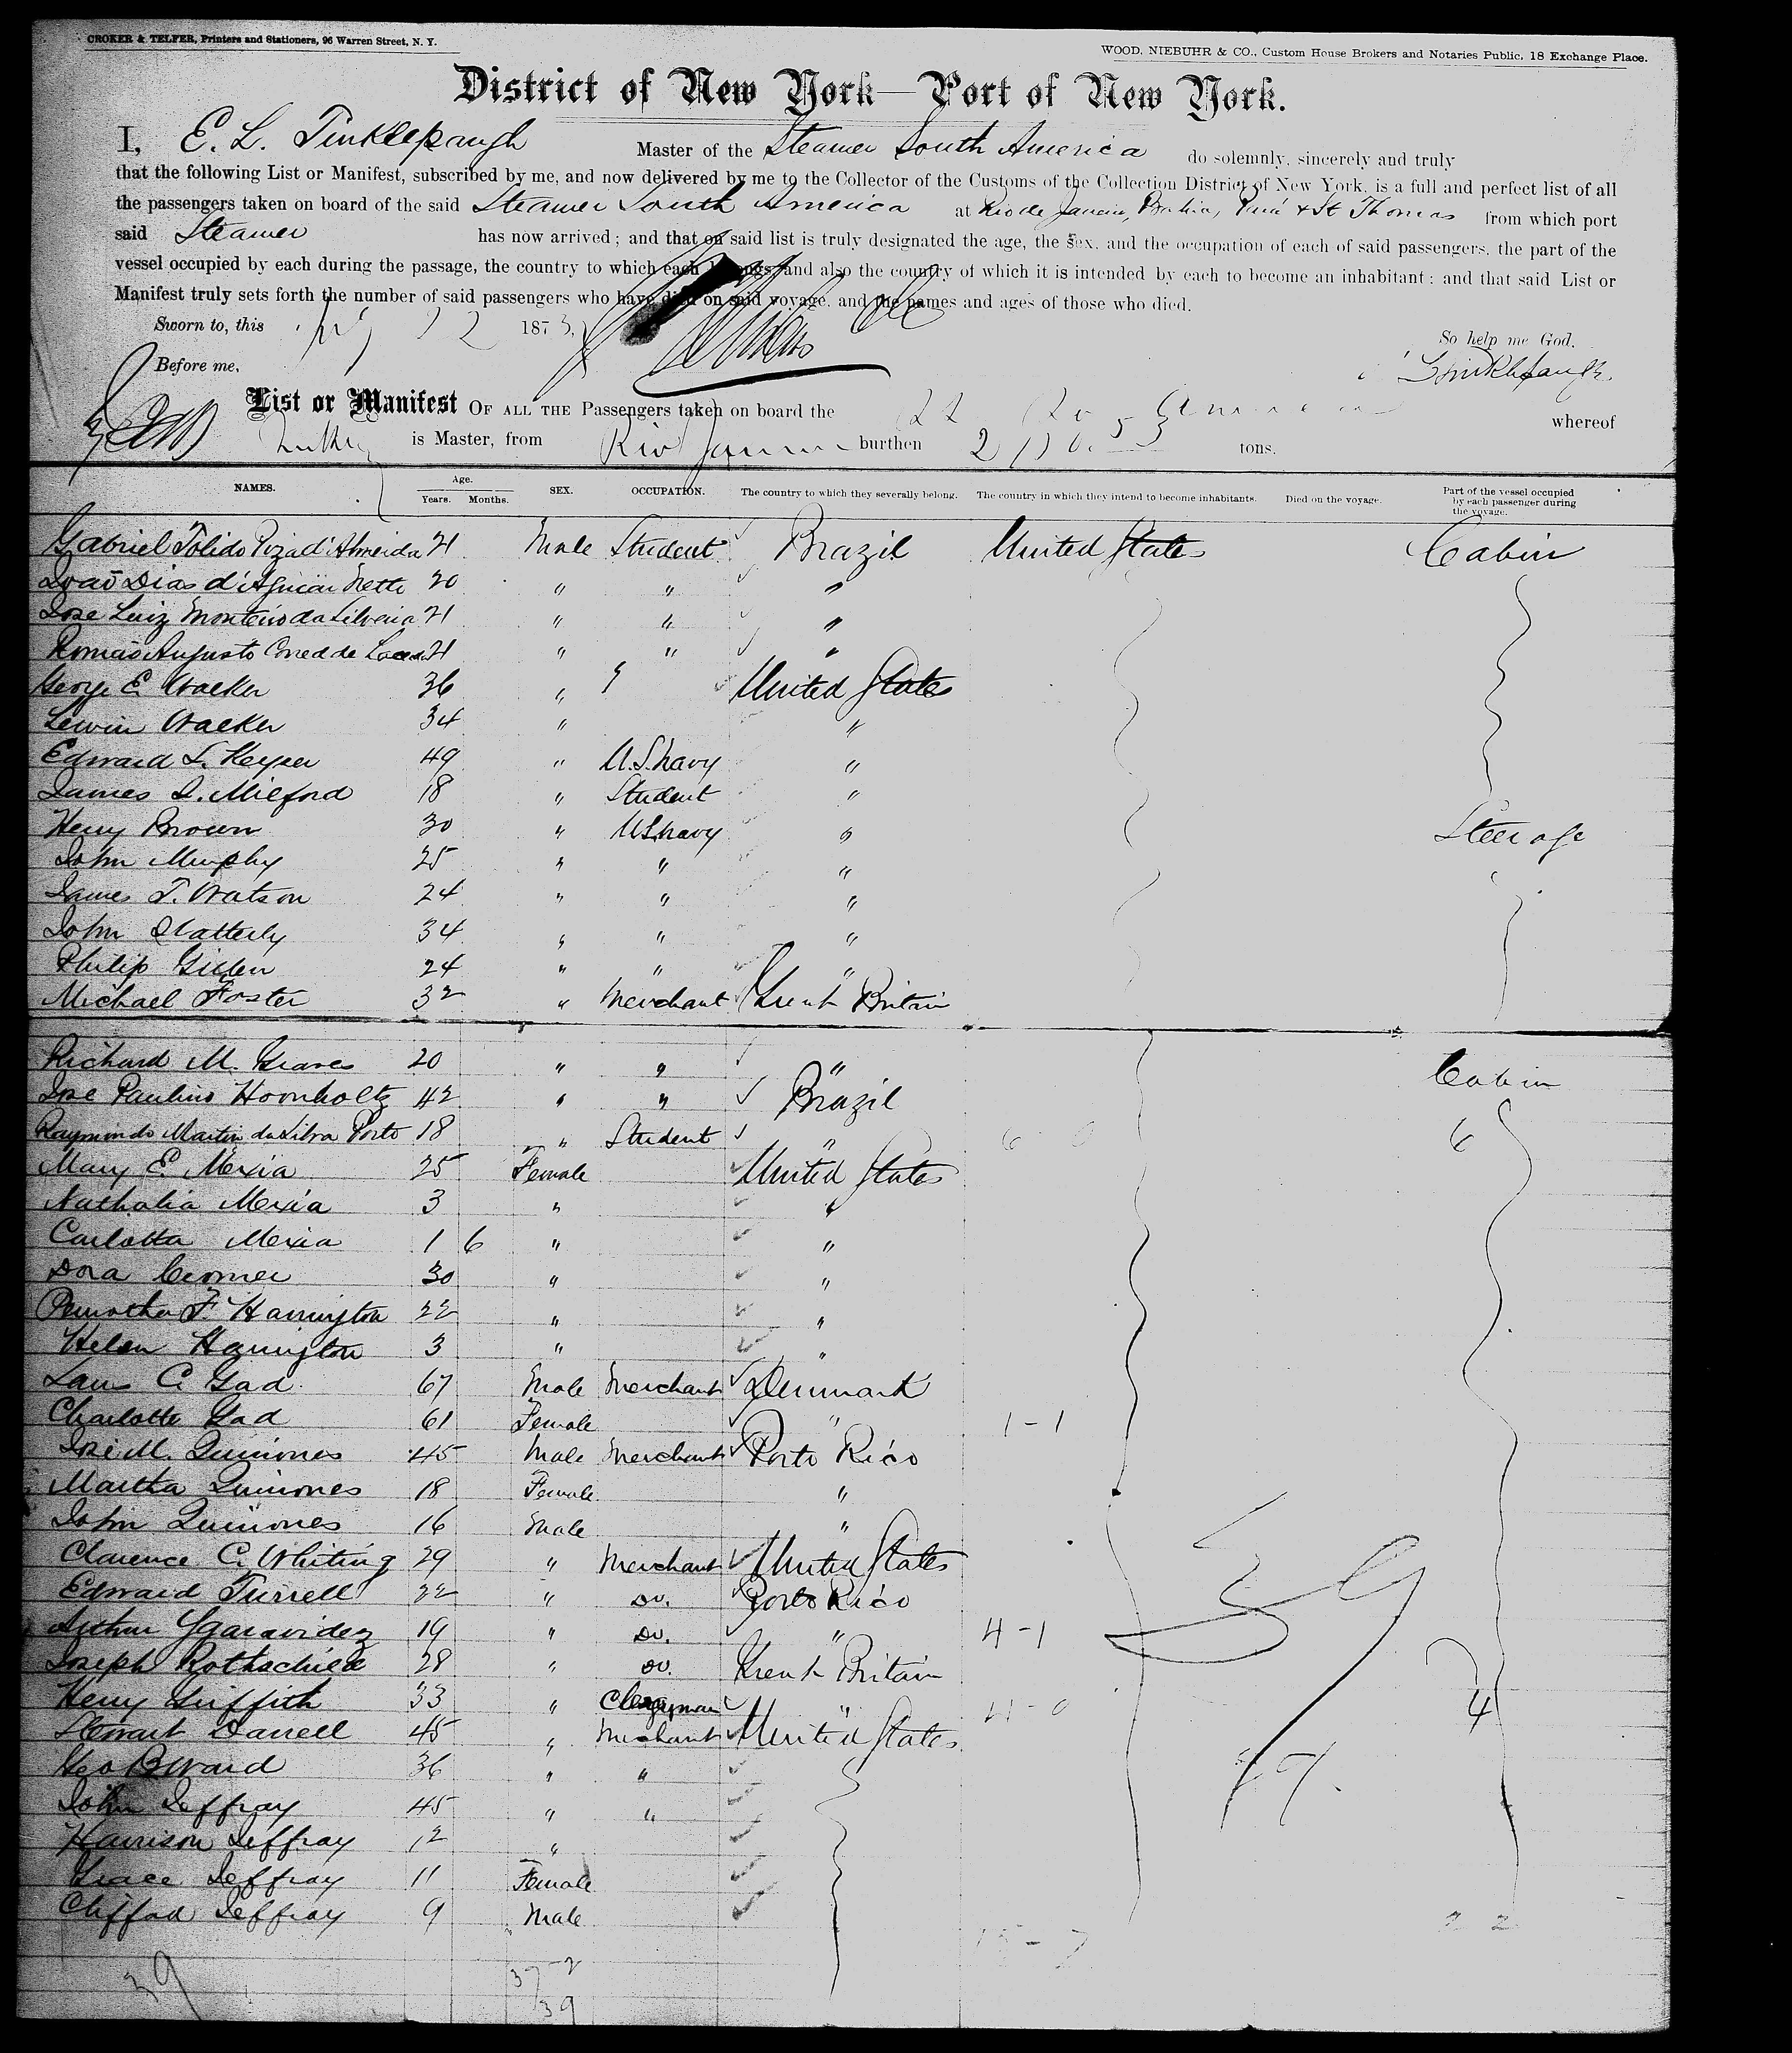 CROKER & TELFER, Printers and Stationers, 96 Warren Street, N. Y.
WOOD, NIEBUHR & CO., Custom House Brokers and Notaries Public, 18 Exchange Place.
District of New York—Port of New York.
I, E. L. Tinklepaugh Master of the Steamer South America do solemnly, sincerely and truly
that the following List or Manifest, subscribed by me, and now delivered by me to the Collector of the Customs of the Collection District of New York, is a full and perfect list of all
the passengers taken on board of the said Steamer South America at Rio de Janeiro, Bahia, Pará & St Thomas from which port
said Steamer has now arrived; and that on said list is truly designated the age, the sex, and the occupation of each of said passengers, the part of the
vessel occupied by each during the passage, the country to which each belongs, and also the country of which it is intended by each to become an inhabitant; and that said List or
Manifest truly sets forth the number of said passengers who have died on said voyage, and the names and ages of those who died.
Sworn to, this 22 1873,
So help me God.
Before me, Tinklepaugh
List or Manifest OF ALL THE Passengers taken on board the whereof
is Master, from Rio Janeiro burthen tons.
NAMES. Age. Years. Months. SEX. OCCUPATION. The country to which they severally belong. The country in which they intend to become inhabitants. Died on the voyage. Part of the vessel occupied by each passenger during the voyage.
Gabriel Tolido Piza d'Almeida 21 Male Student Brazil United States Cabin
Joaõ Dias d'Aguiar Netto 20 " " "
Jose Luiz Monteiro da Silveira 21 " " "
Romão Augusto 21 " " "
George E. Walker 36 " " United States
Lewin Walker 34 " "
Edward L. Keyser 49 " U.S. Navy "
James I. Milford 18 " Student "
Henry Brown 30 " U.S. Navy " Steerage
John Murphy 25 " " "
James T. Watson 24 " " "
John Slatterly 34 " " "
Philip 24 " " "
Michael Foster 32 " Merchant Great Britain
Richard M. Graves 20 " " " Cabin
Jose Paulino Hoonholtz 42 " " Brazil
Raymondo Martin da Silva Porto 18 " Student " 6 - 0 6
Mary E. Mexia 25 Female United States
Nathalia Mexia 3 " "
Carlotta Mexia 1 6 " "
Dora Cromer 30 " "
F. Harrington 22 " "
Helen Harrington 3 " "
Laur C. Gad 67 Male Merchant Denmark
Charlotte Gad 61 Female " 1 - 1
José M. Quinones 45 Male Merchant Porto Rico
Martha Quinones 18 Female "
John Quinones 16 Male "
Clarence C. Whiting 29 " Merchant United States
Edward Turrell 22 " Do. Porto Rico
Arthur Ygaravidez 19 " Do. " 4 - 1
Joseph Rothschild 28 " Do. Great Britain
Henry Griffith 33 " Clergyman " 4 - 0 4
Stewart Darrell 45 " Merchant United States
Geo B Ward 36 " "
John Jeffray 45 " "
Harrison Jeffray 12 "
Grace Jeffray 11 Female
Clifford Jeffray 9 Male
15 - 7 22
39
37 - 2
39